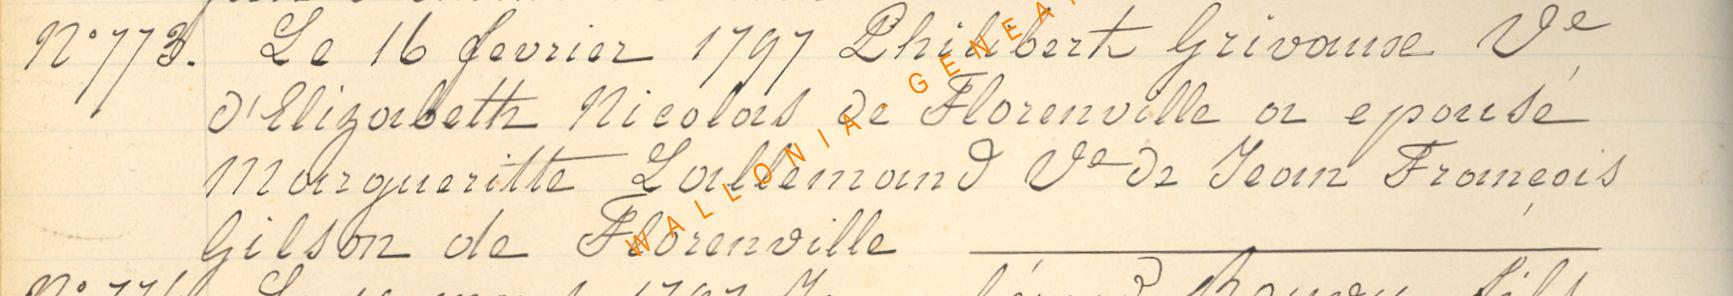 N° 773. Le 16 fevrier 1797 Philibert Grivause Ve
d'Elizabeth Nicolas de Florenville a epousé
Margueritte Lallemand Ve de Jean François
Gilson de Florenville
WALLONIA - GENEA